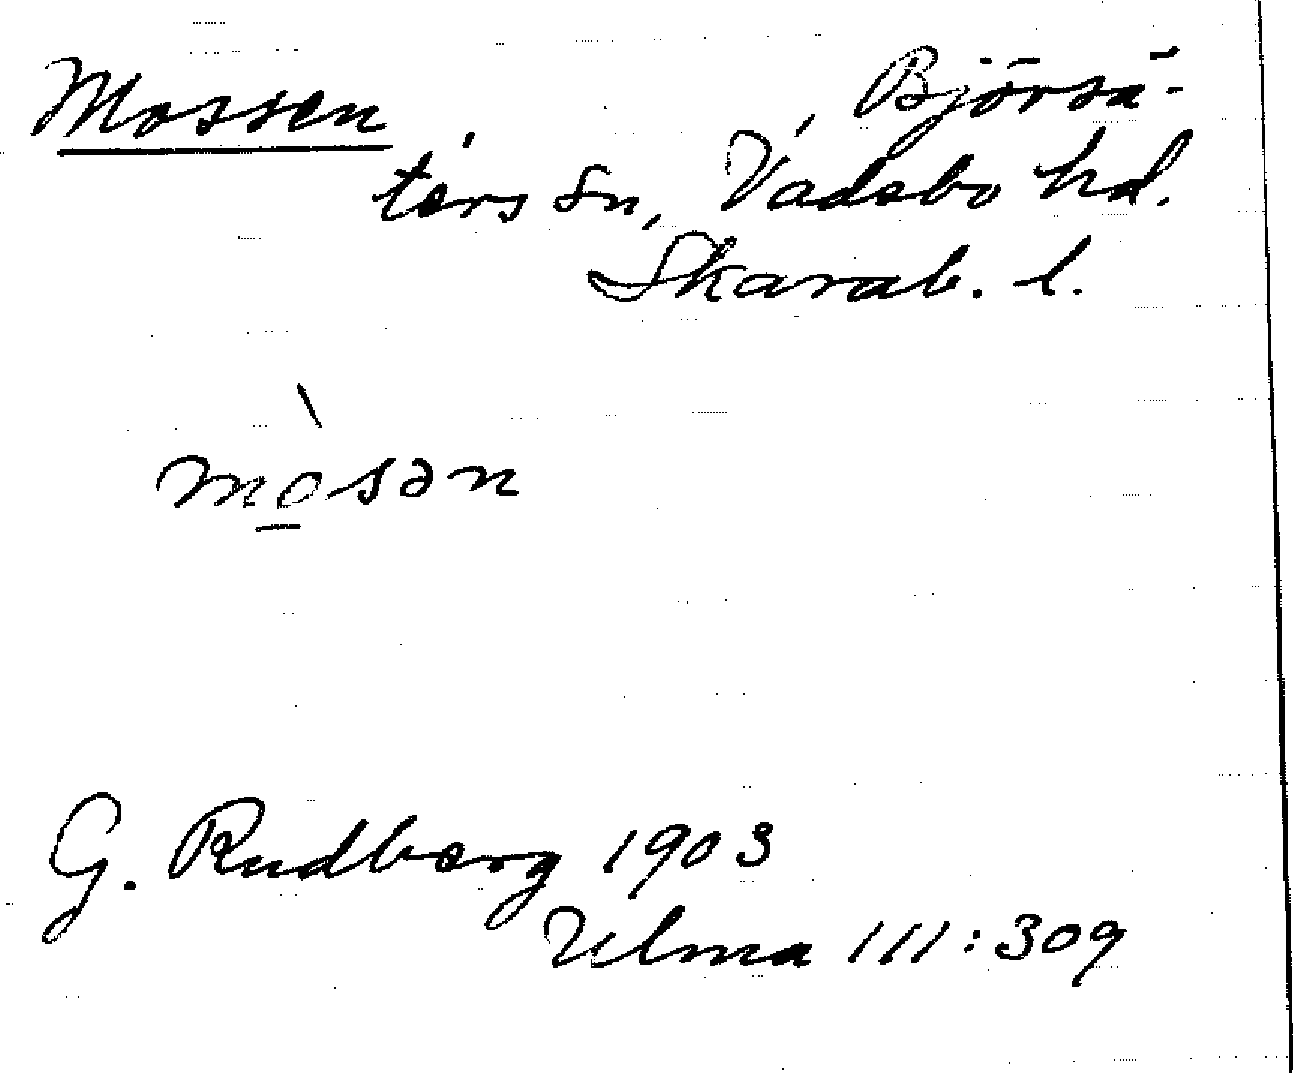 Mossen, Björsä-
ters sn, Vadsbo hd.
Skarab. l.
mò̲sən
G. Rudberg 1903
Ulma 111:309